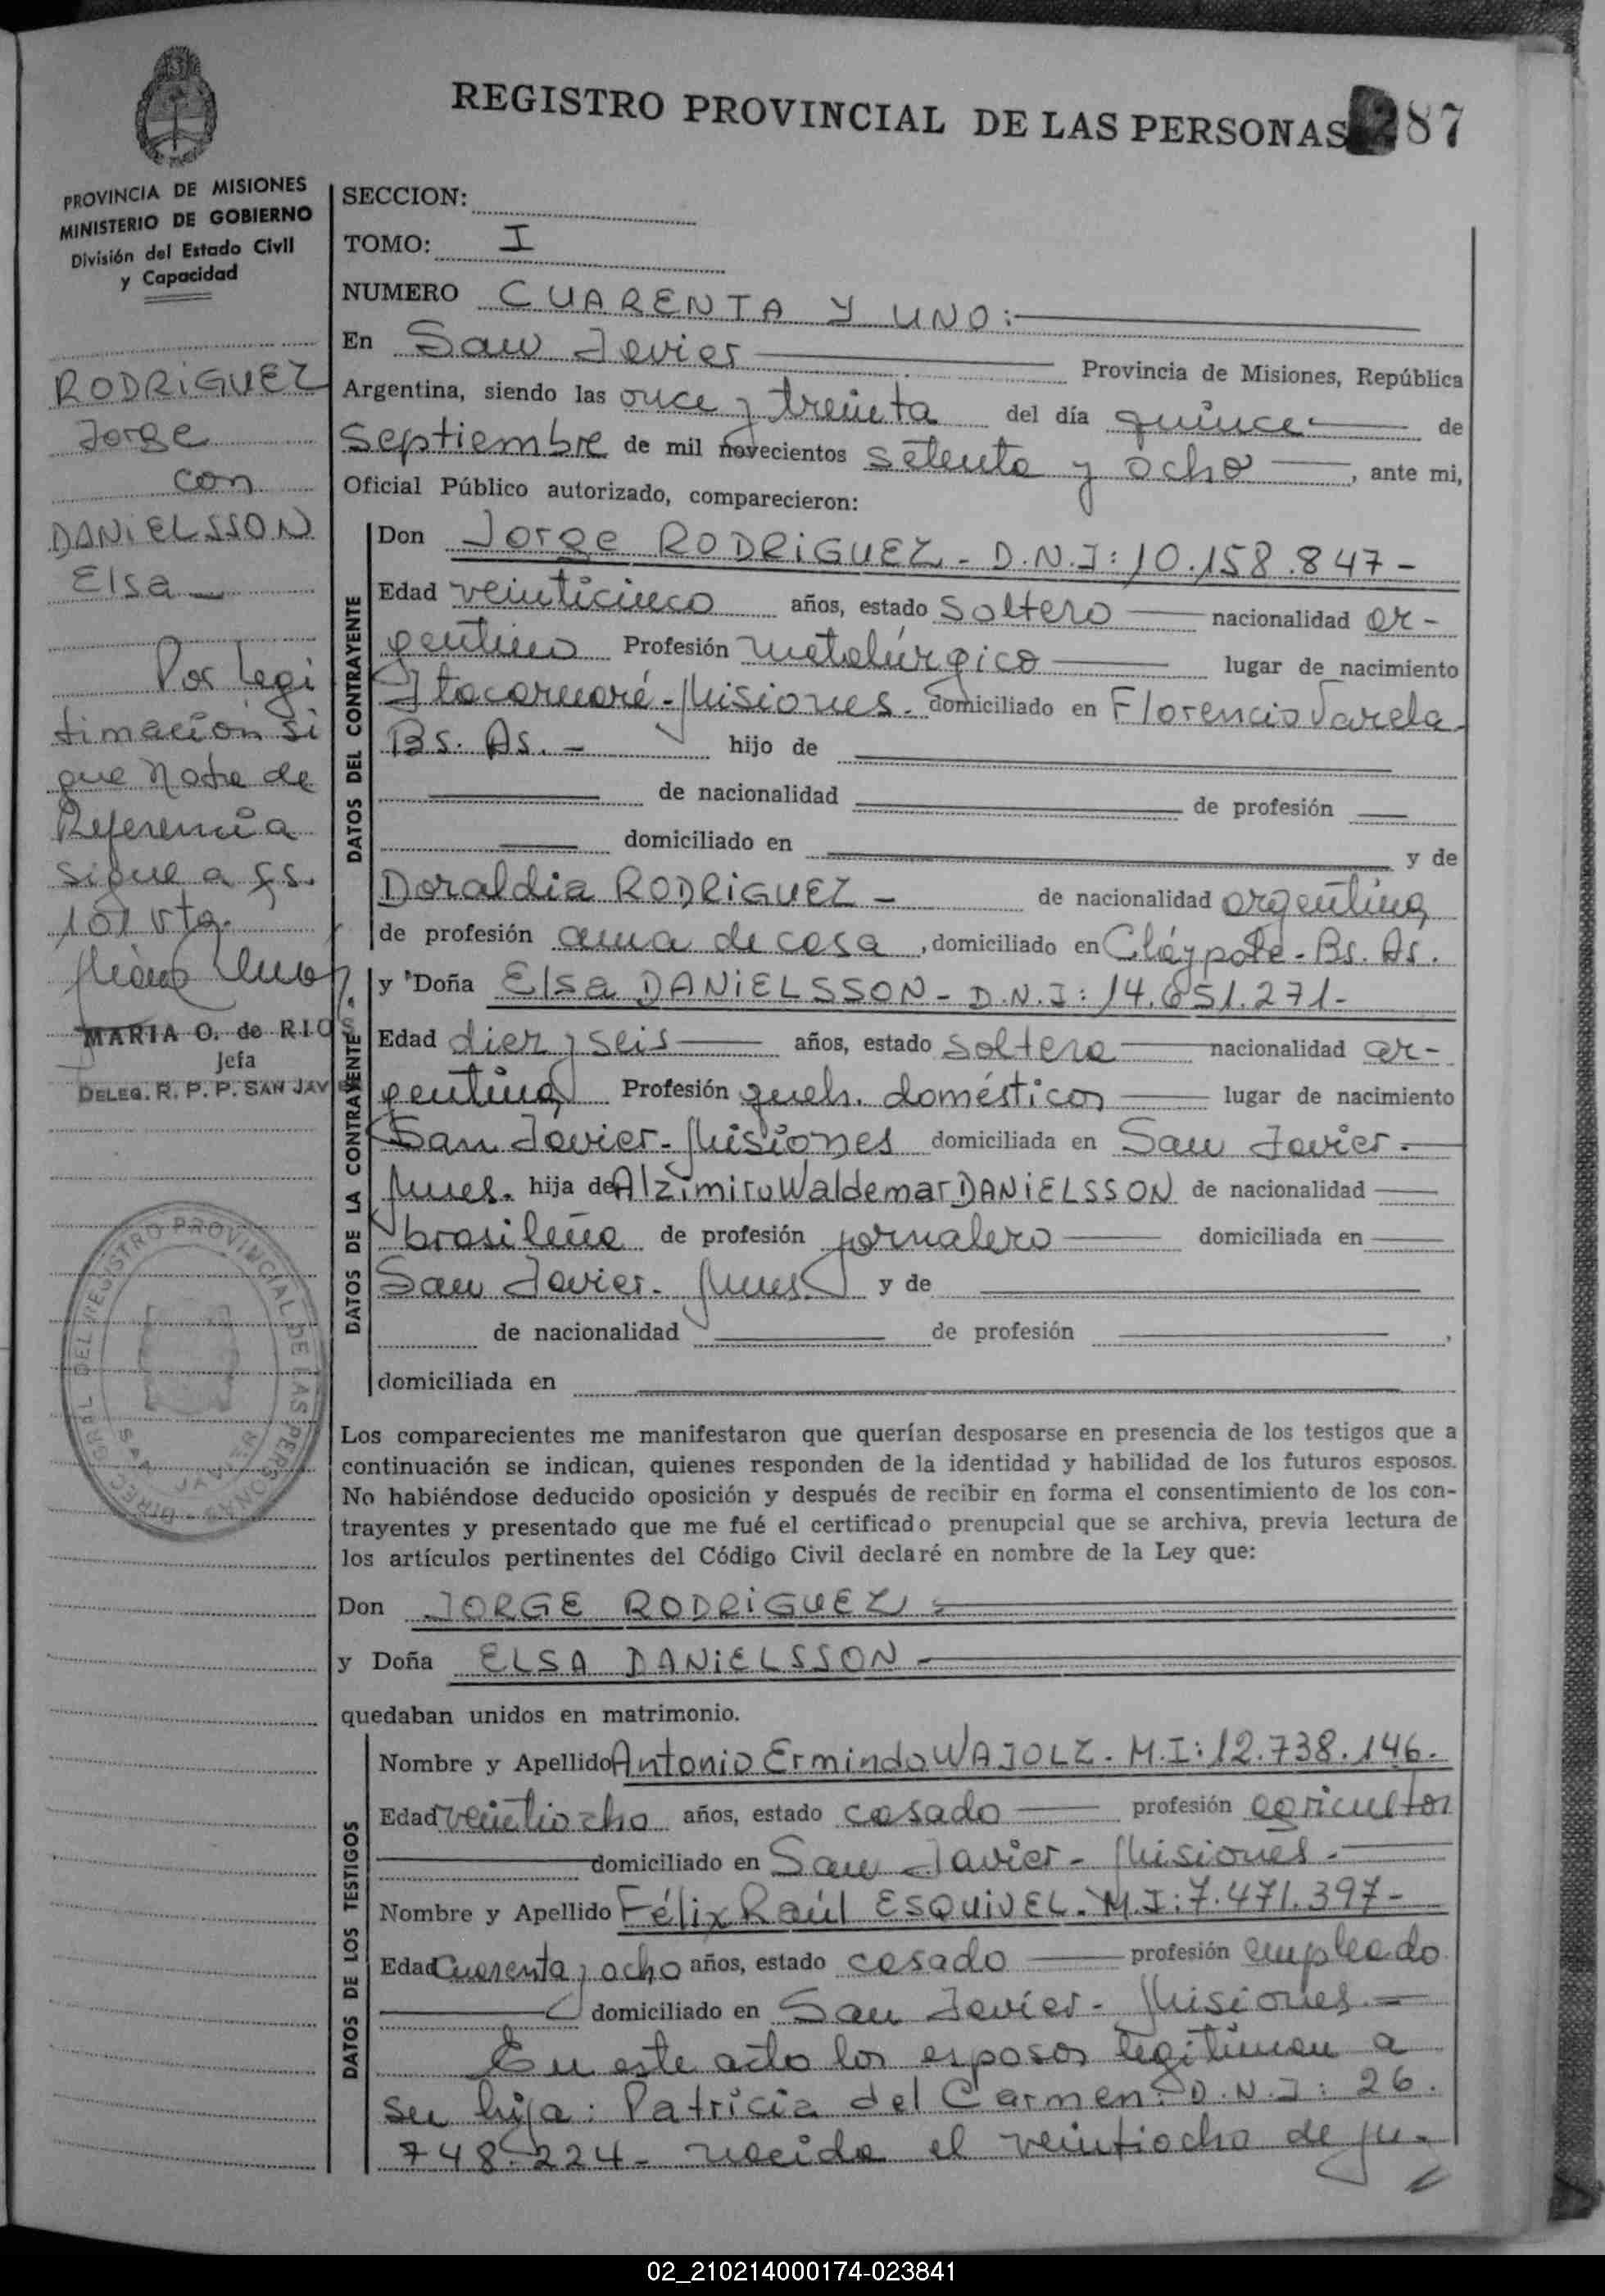 REGISTRO PROVINCIAL DE LAS PERSONAS 287
PROVINCIA DE MISIONES
MINISTERIO DE GOBIERNO
División del Estado Civil
y Capacidad
RODRIGUEZ
Jorge
con
DANiELSSON
Elsa
Por Legi
timación si
gue Nota de
Referencia
sigue a fs.
101 vta.
MARIA O. de RIOS
Jefa
DELEG. R. P. P. SAN JAVIER
DIREC. GRAL. DEL REGISTRO PROVINCIAL DE LAS PERSONAS
SAN JAVIER
SECCION:
TOMO: I
NUMERO CUARENTA Y UNO:
En San Javier Provincia de Misiones, República
Argentina, siendo las once y treinta del día quince de
Septiembre de mil novecientos setenta y ocho, ante mi,
Oficial Público autorizado, comparecieron:
DATOS DEL CONTRAYENTE
Don Jorge RODRiGUEZ - D.N.I: 10.158.847-
Edad veinticinco años, estado soltero nacionalidad ar-
gentino Profesión metalúrgico lugar de nacimiento
Itacaruaré - Misiones. domiciliado en Florencio Varela
Bs. As. - hijo de
de nacionalidad de profesión
domiciliado en y de
Doraldia RODRiGUEZ - de nacionalidad argentina
de profesión ama de casa, domiciliado en Cláypole - Bs. As.
DATOS DE LA CONTRAYENTE
y Doña Elsa DANiELSSON - D.N.I: 14.651.271-
Edad diez y seis años, estado soltera nacionalidad ar-
gentina Profesión queh. domésticos lugar de nacimiento
San Javier - Misiones domiciliada en San Javier -
Mnes. hija de Alzimiro Waldemar DANiELSSON de nacionalidad
brasileña de profesión jornalero domiciliada en
San Javier - Mnes. y de
de nacionalidad de profesión ,
domiciliada en
Los comparecientes me manifestaron que querían desposarse en presencia de los testigos que a
continuación se indican, quienes responden de la identidad y habilidad de los futuros esposos.
No habiéndose deducido oposición y después de recibir en forma el consentimiento de los con-
trayentes y presentado que me fué el certificado prenupcial que se archiva, previa lectura de
los artículos pertinentes del Código Civil declaré en nombre de la Ley que:
Don JORGE RODRiGUEZ -
y Doña ELSA DANiELSSON -
quedaban unidos en matrimonio.
DATOS DE LOS TESTIGOS
Nombre y Apellido Antonio Ermindo WAJOLZ - M.I: 12.738.146.
Edad veintiocho años, estado casado profesión agricultor
domiciliado en San Javier - Misiones -
Nombre y Apellido Félix Raúl ESQUiVEL - M.I: 7.471.397-
Edad Cuarenta y ocho años, estado casado profesión empleado
domiciliado en San Javier - Misiones -
En este acto los esposos legitiman a
su hija: Patricia del Carmen: D.N.I: 26.
748.224 - nacida el veintiocho de ju-
02_210214000174-023841